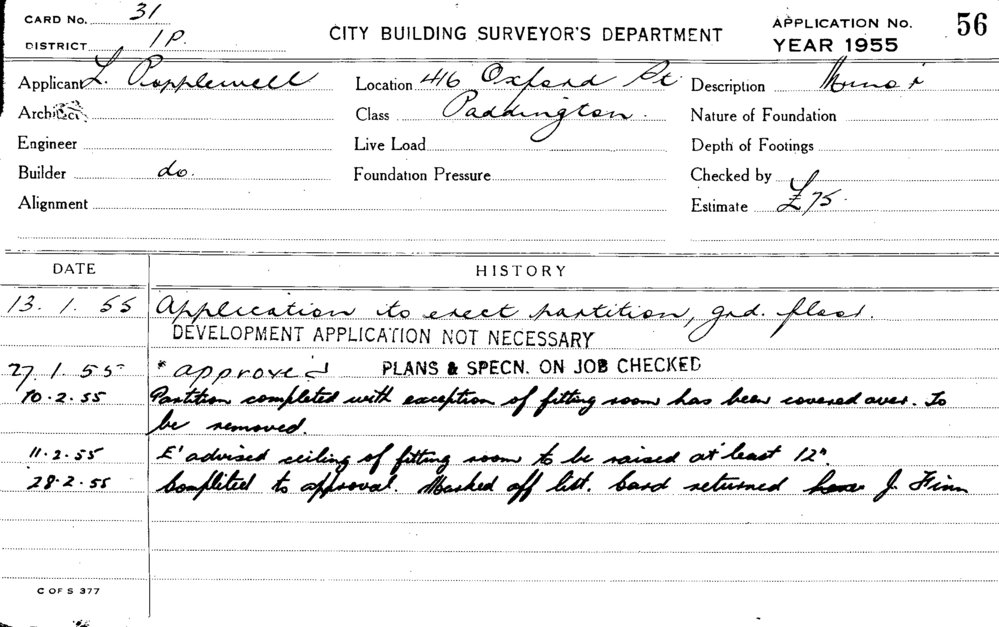 CARD No. 31
DISTRICT 1P.
CITY BUILDING SURVEYOR'S DEPARTMENT
APPLICATION No. 56
YEAR 1955
Applicant L. Popplewell
Location 416 Oxford St
Description Minor
Architect
Class Paddington.
Nature of Foundation
Engineer
Live Load
Depth of Footings
Builder do.
Foundation Pressure
Checked by
Alignment
Estimate £75.
DATE HISTORY
13. 1. 55 Application to erect partition, grd. floor.
DEVELOPMENT APPLICATION NOT NECESSARY
27. 1. 55 * approved PLANS & SPECN. ON JOB CHECKED
10.2.55 Partition completed with exception of fitting room has been covered over. To
be removed.
11.2.55 E' advised ceiling of fitting room to be raised at least 12".
28.2.55 Completed to approval. Marked off list. Card returned J. Finn
C OF S 377